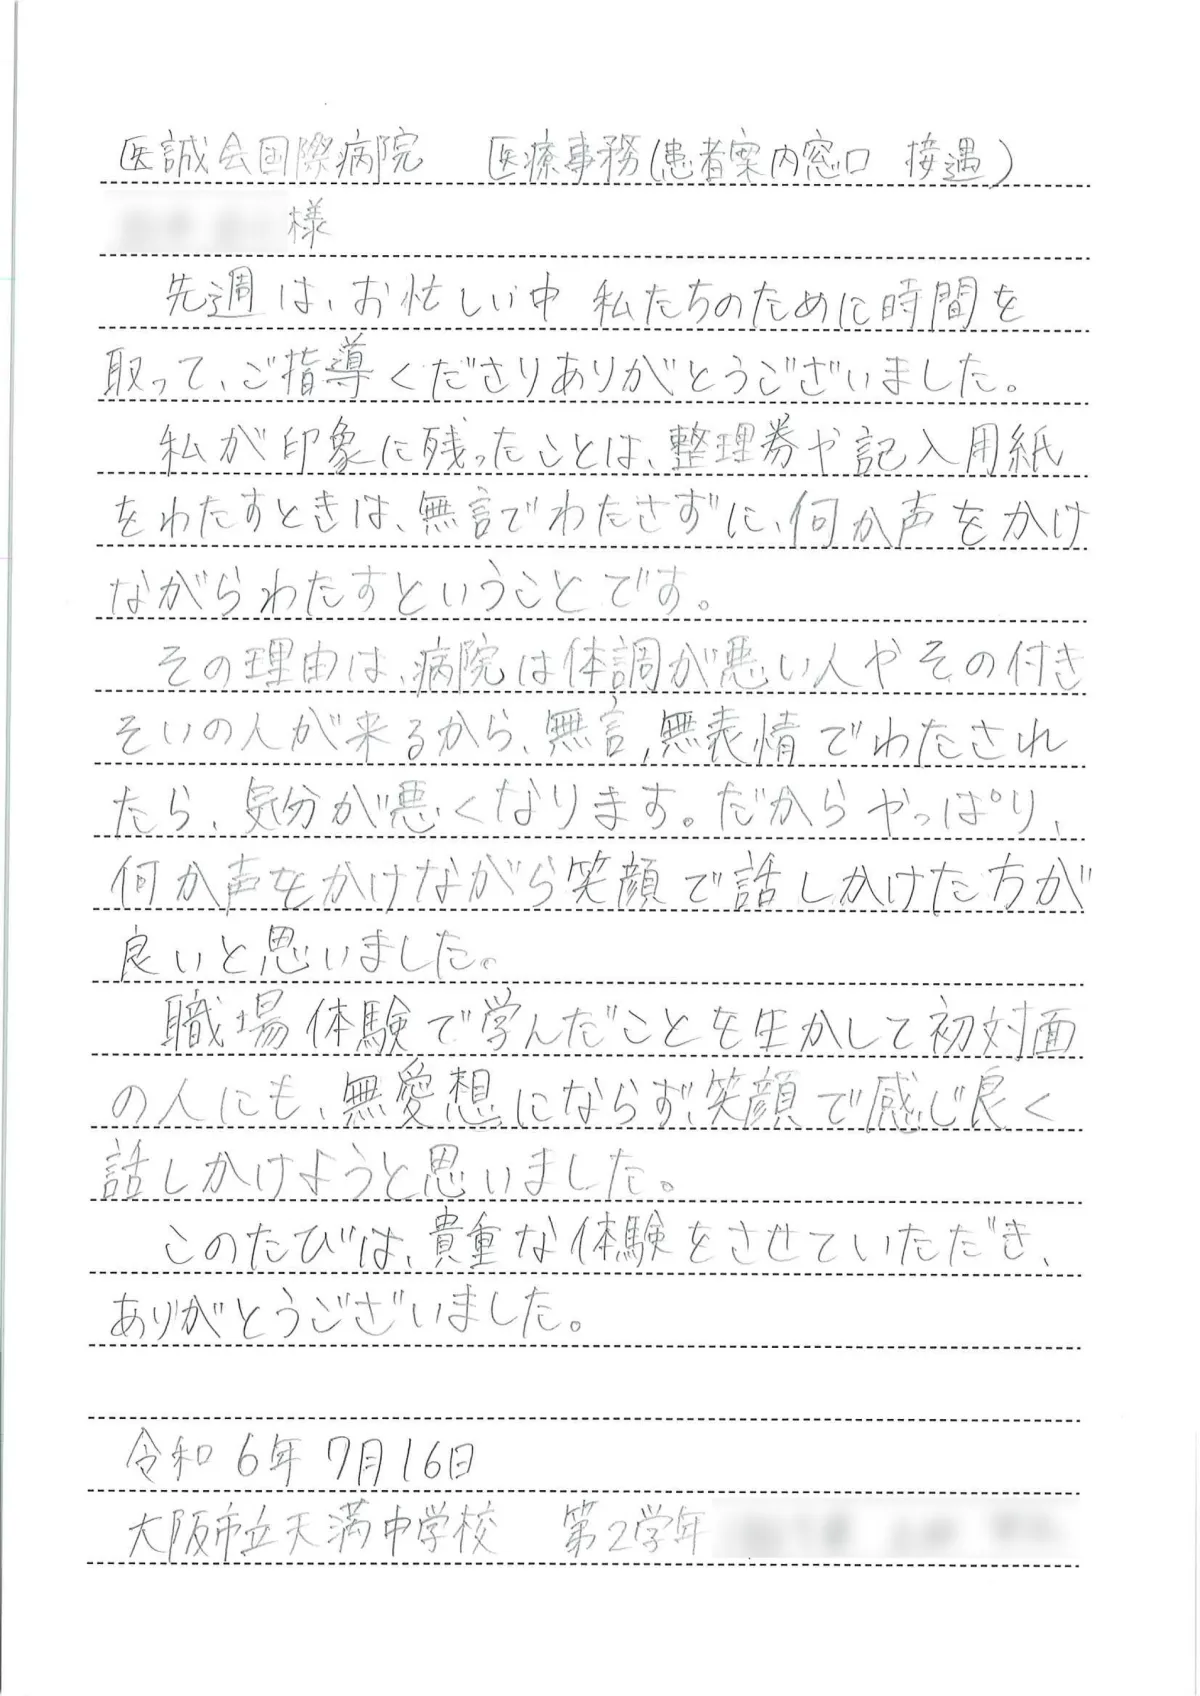 医誠会国際病院　医療事務(患者案内窓口　接遇)
様
先週は、お忙しい中 私たちのために時間を
取って、ご指導くださりありがとうございました。
私が印象に残ったことは、整理券や記入用紙
をわたすときは、無言でわたさずに、何か声をかけ
ながらわたすということです。
その理由は、病院は体調が悪い人やその付き
そいの人が来るから、無言,無表情でわたされ
たら、気分が悪くなります。だからやっぱり、
何か声をかけながら笑顔で話しかけた方が
良いと思いました。
職場体験で学んだことを生かして初対面
の人にも、無愛想にならず、笑顔で感じ良く
話しかけようと思いました。
このたびは、貴重な体験をさせていただき、
ありがとうございました。
令和6年7月16日
大阪市立天満中学校　第2学年